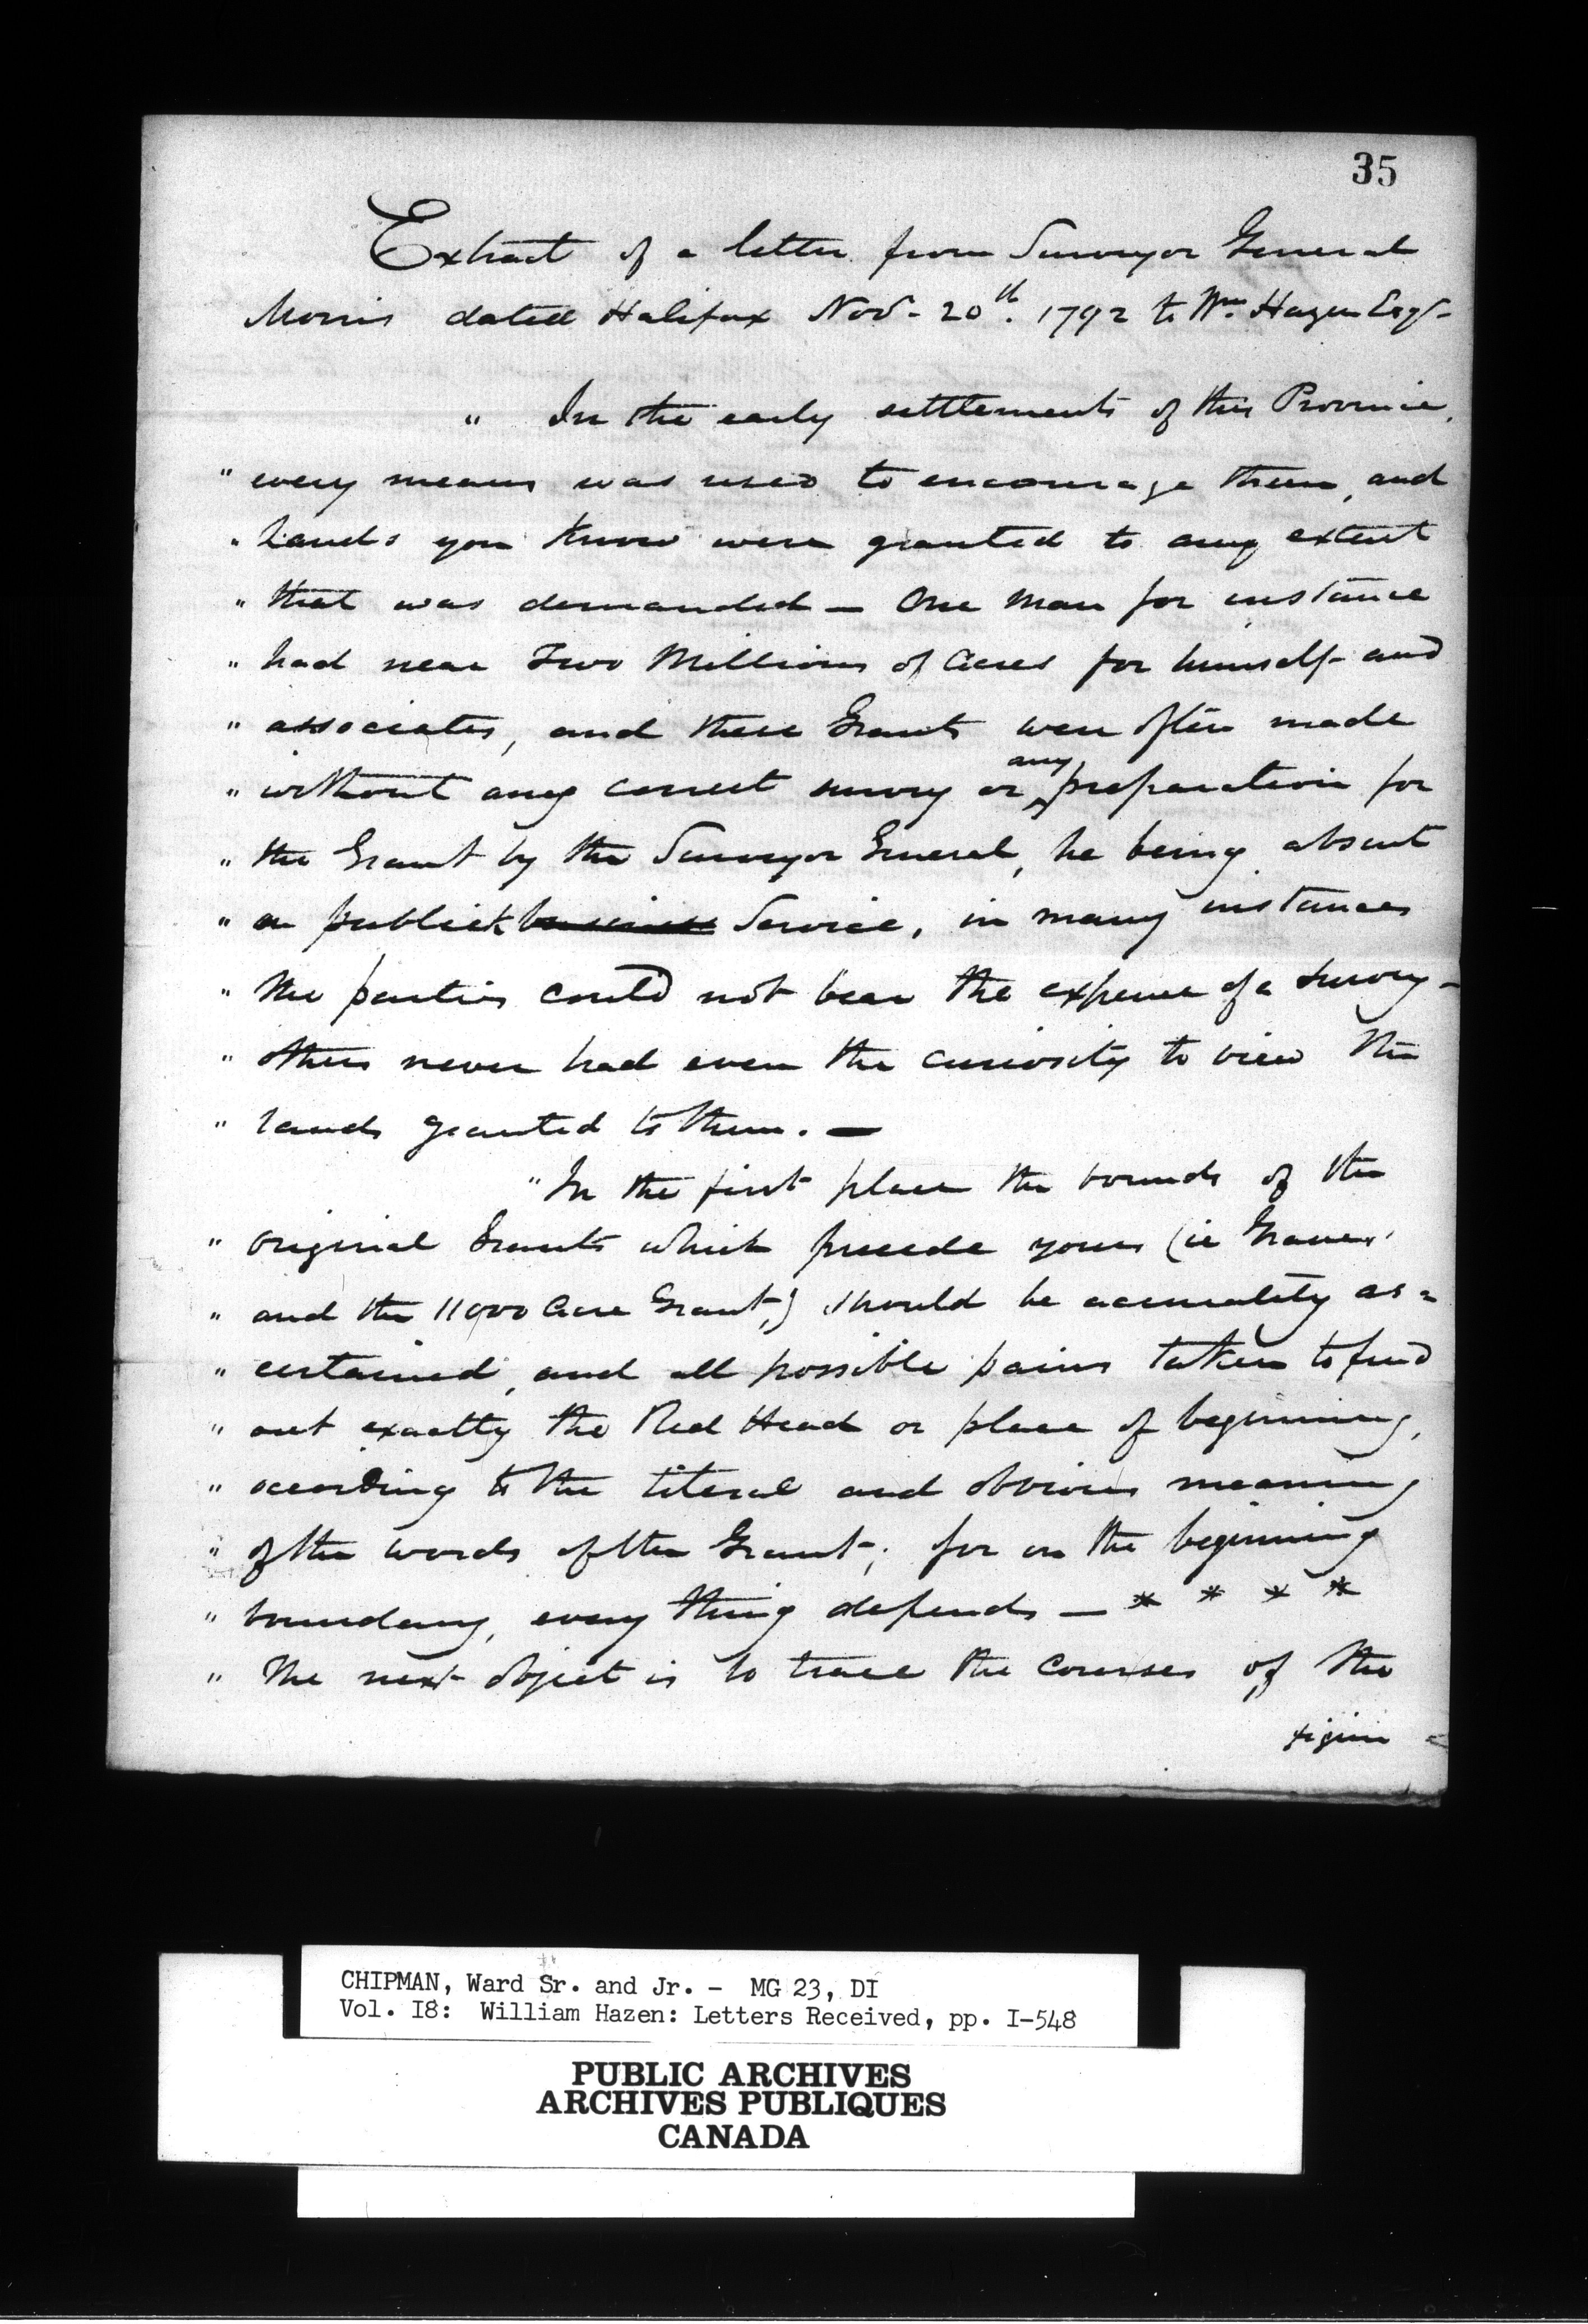 35
Extract of a letter from Surveyor General
Morris dated Halifax Nov. 20th. 1792 to Wm. Hazen Esqr.
" In the early settlements of this Province,
" every means was used to encourage them, and
" lands you know were granted to any extent
" that was demanded — One man for instance
" had near Two Millions of Acres for himself and
" associates, and these Grants were often made
" without any correct survey or any preparation for
" the Grant by the Surveyor General, he being absent
" on publick business Service, in many instances
" the parties could not bear the expence of a survey -
" others never had even the curiosity to view the
" lands granted to them. —
" In the first place the bounds of the
" original Grants which precede yours (ie
" and the 11000 Acre Grant,) should be accurately as =
" certained, and all possible pains taken to find
" out exactly the Red Head or place of beginning,
" according to the literal and obvious meaning
" of the words of the Grant; for on the beginning
" boundary, every thing depends — * * * *
" The next object is to trace the courses of the
CHIPMAN, Ward Sr. and Jr. - MG 23, DI
Vol. I8: William Hazen: Letters Received, pp. I-548
PUBLIC ARCHIVES
ARCHIVES PUBLIQUES
CANADA